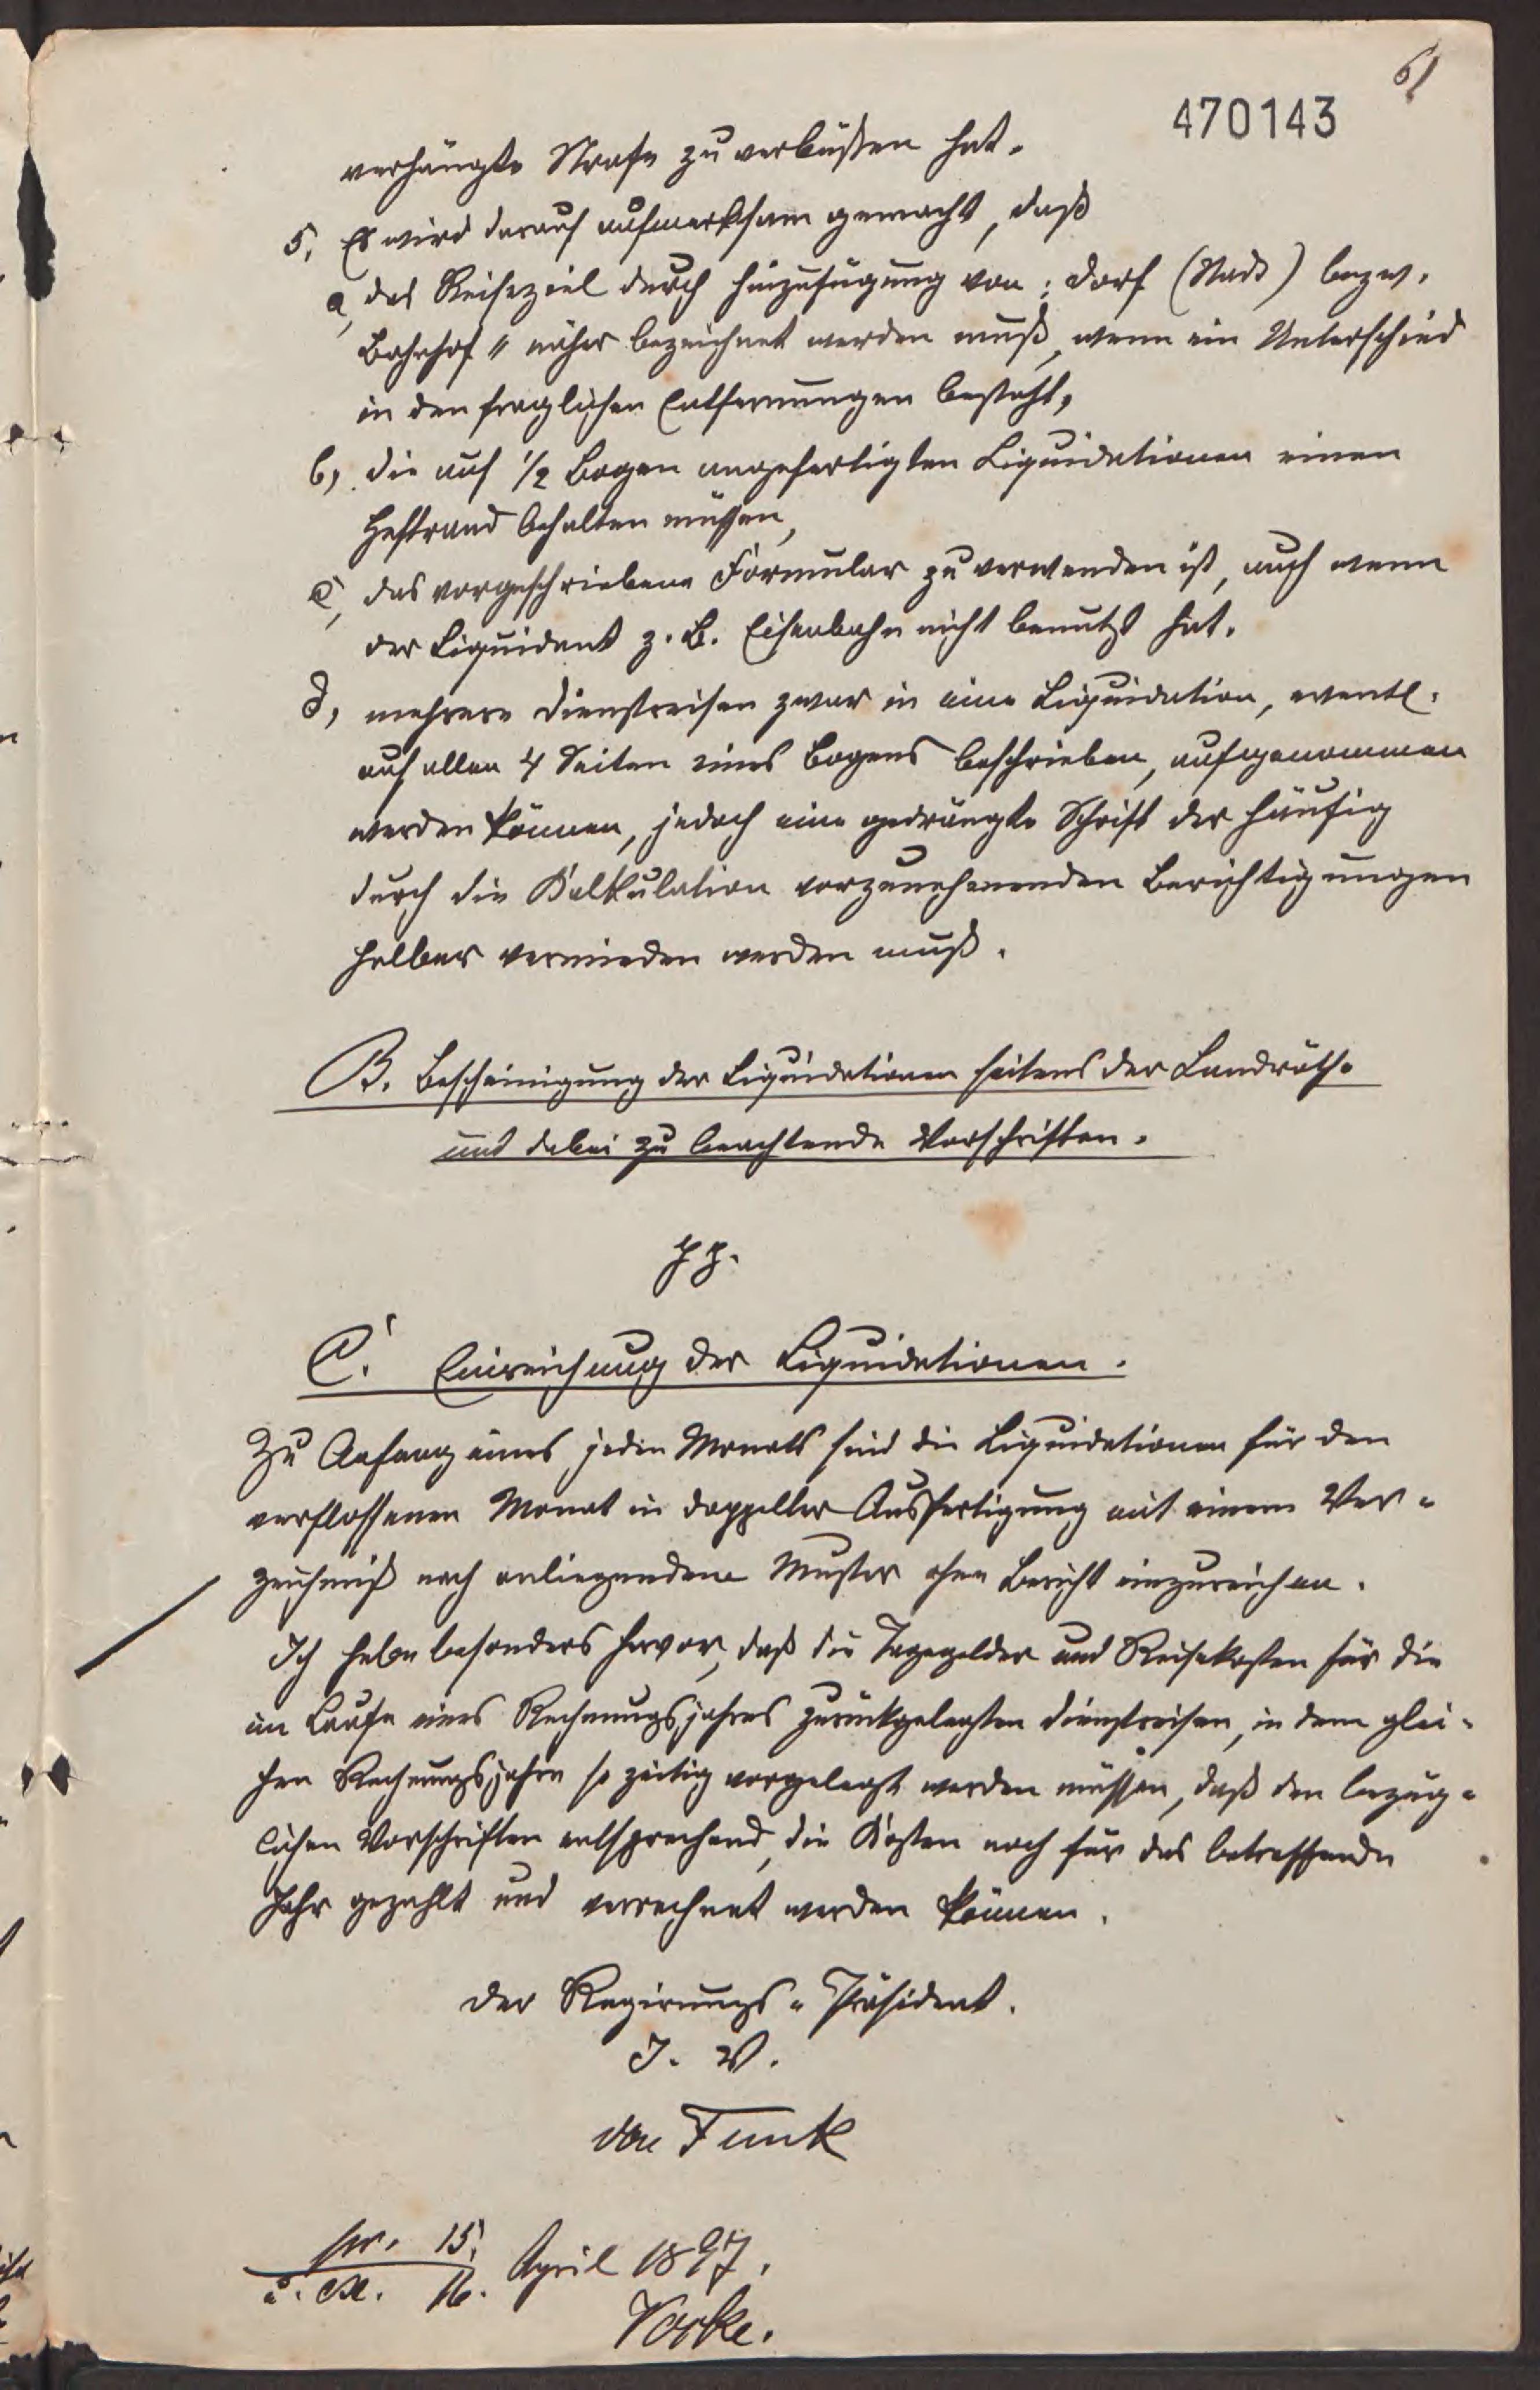 61
470143
verhängte Strafe zu verbüßen hat.
5, Es wird darauf aufmerksam gemacht, daß
a, das Reiseziel durch Hinzufügung von: Dorf (Stadt) bezw.
Bahnhof " näher bezeichnet werden muß, wenn ein Unterschied
in den fraglichen Entfernungen besteht,
b, die auf 1/2 Bogen angefertigten Liquidationen einen
Heftrand behalten müssen,
c, das vorgeschriebene Formular zu verwenden ist, auch wenn
der Liquidant z. B. Eisenbahn nicht benutzt hat.
d, mehrere Dienstreisen zwar in eine Liquidation, eventl.
auf allen 4 Seiten eines Bogens beschrieben, aufgenommen
werden können, jedoch eine gedrängte Schrift der häufig
durch die Kalkulation vorzunehmenden Berichtigungen
halber vermieden werden muß.
B. Bescheinigung der Liquidationen seitens der Landräthe
und dabei zu beachtende Vorschriften.
pp.
C. Einreichung der Liquidationen.
Zu Anfang eines jeden Monats sind die Liquidationen für den
verflossenen Monat in doppelter Ausfertigung mit einem Ver-
zeichniß nach anliegendem Muster ohne Bericht einzureichen.
Ich hebe besonders hervor, daß die Tagegelder und Reisekosten für die
im Laufe eines Rechnungsjahres zurückgelegten Dienstreisen, in dem glei-
chen Rechnungsjahre so zeitig vorgelegt werden müssen, daß den bezüg-
lichen Vorschriften entsprechend, die Kosten noch für das betreffende
Jahr gezahlt und verrechnet werden können.
Der Regirungs-Präsident.
J. V.
von Funk
pr. 15.
April 1897.
16.
Vorke.